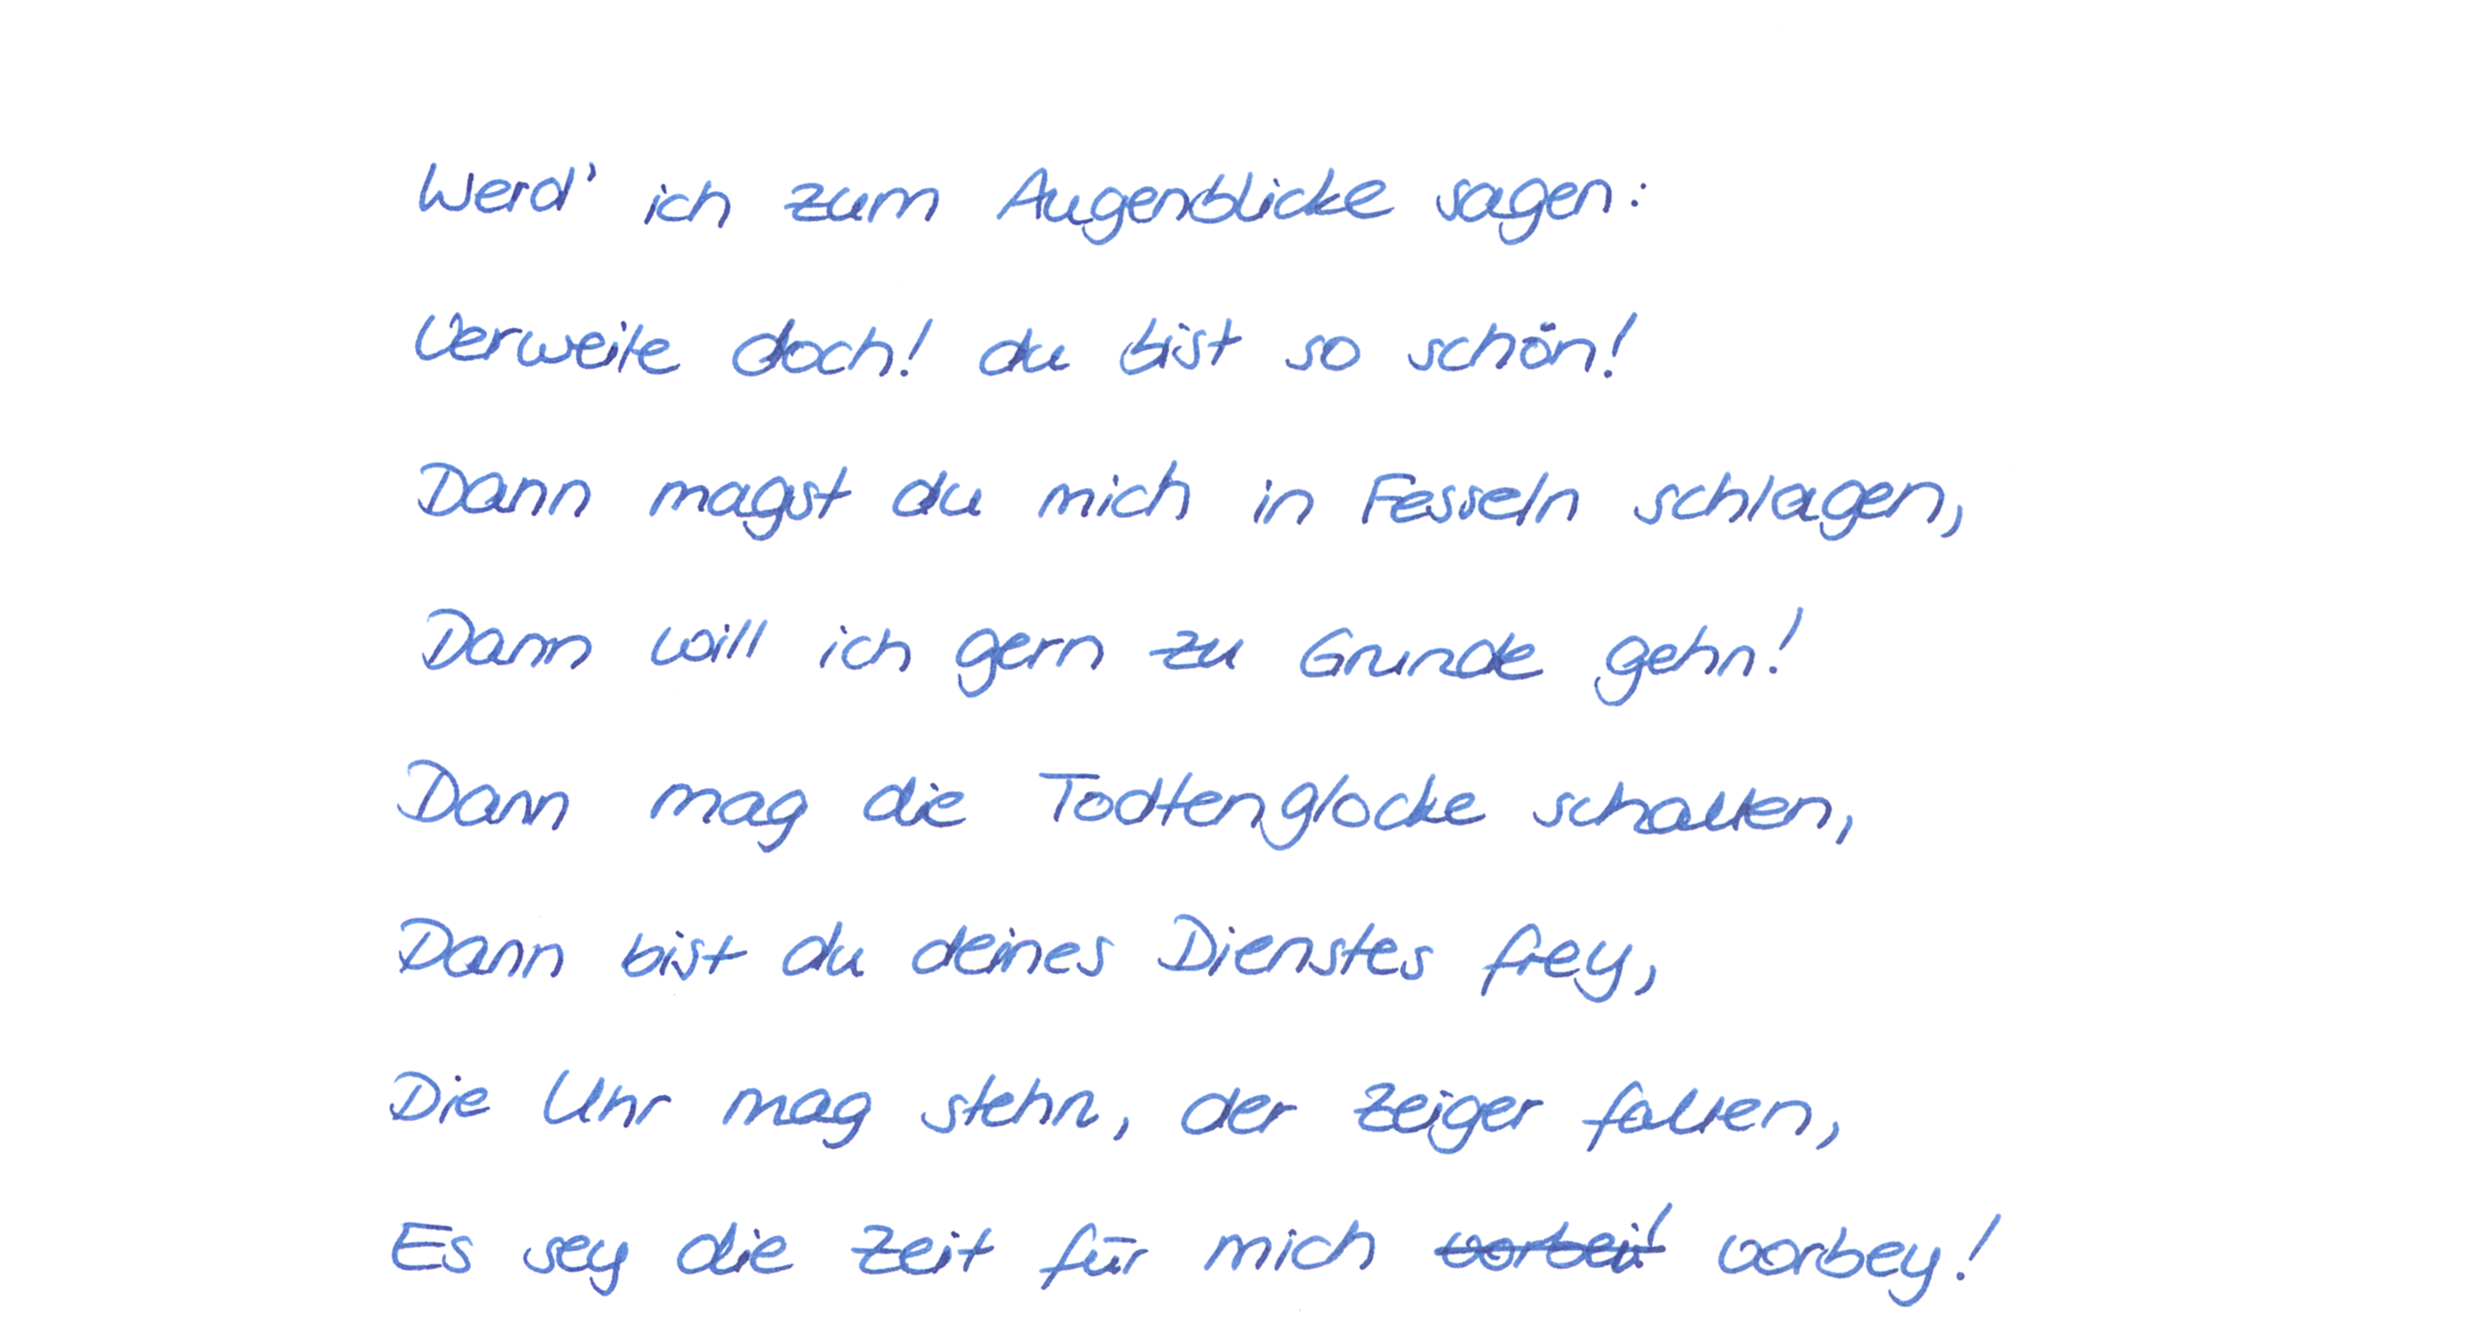 Werd' ich zum Augenblicke sagen:
Verweile doch! du bist so schön!
Dann magst du mich in Fesseln schlagen,
Dann will ich gern zu Grunde gehn!
Dann mag die Todtenglocke schallen,
Dann bist du deines Dienstes frey,
Die Uhr mag stehn, der Zeiger fallen,
Es sey die Zeit für mich vorbei! vorbey!